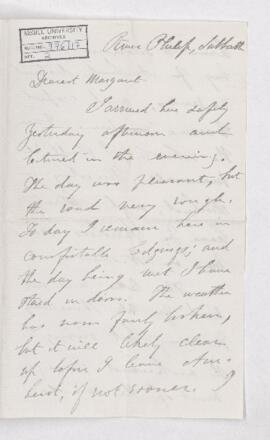 McGILL UNIVERSITY
ARCHIVES
ACC. NO. 976/17
REF.
River Philip, Sabbath
Dearest Margaret
I arrived here safely
yesterday afternoon and
lectured in the evening.
The day was pleasant, but
the road very rough.
To day I remain here in
comfortable lodgings; and
the day being wet I have
staid in doors. The weather
has now fairly broken,
but it will likely clear
up before I leave Am-
herst, if not sooner. I